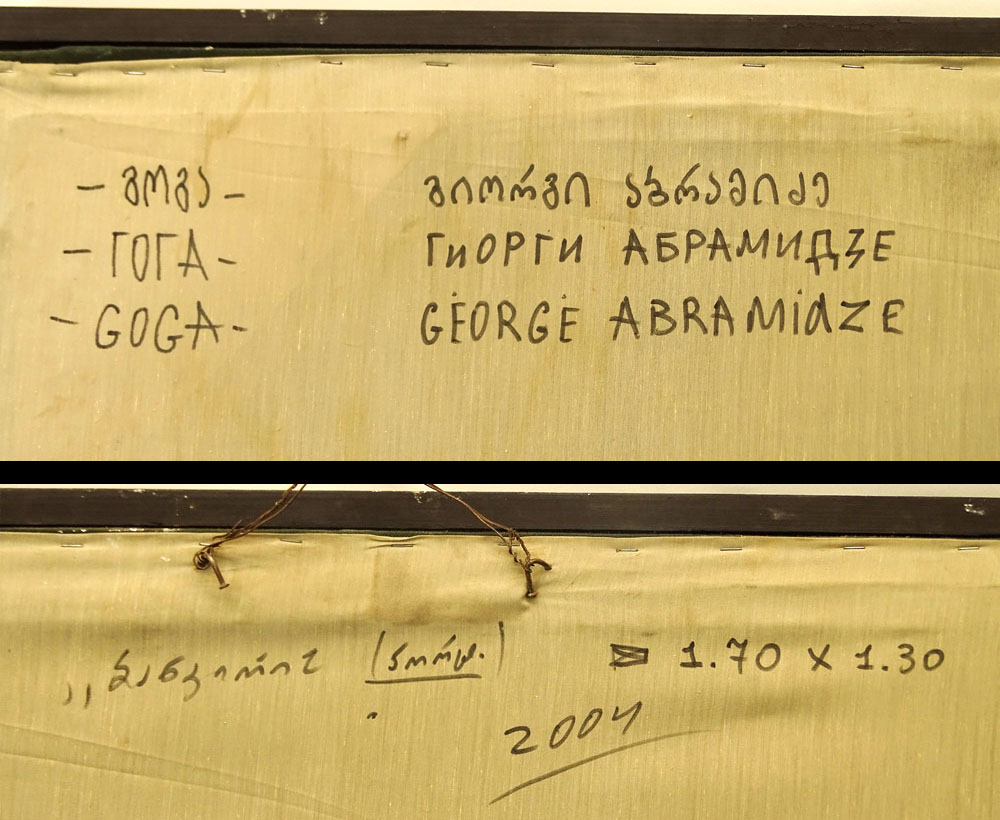 – გოგა – გიორგი აბრამიძე
– ГОГА – ГИОРГИ АБРАМИДЗЕ
– GOGA – GEORGE ABRAMIdZE
1.70 x 1.30
2004